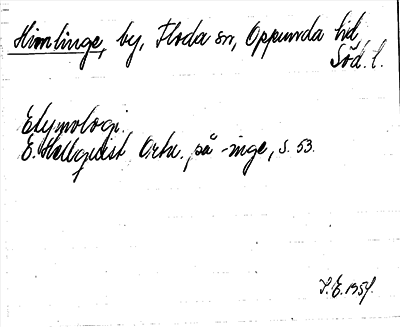 Himlinge, by, Floda sn, Oppunda hd,
Söd. l.
Etymologi.
E. Hellquist Ortn. på -inge, s. 53.